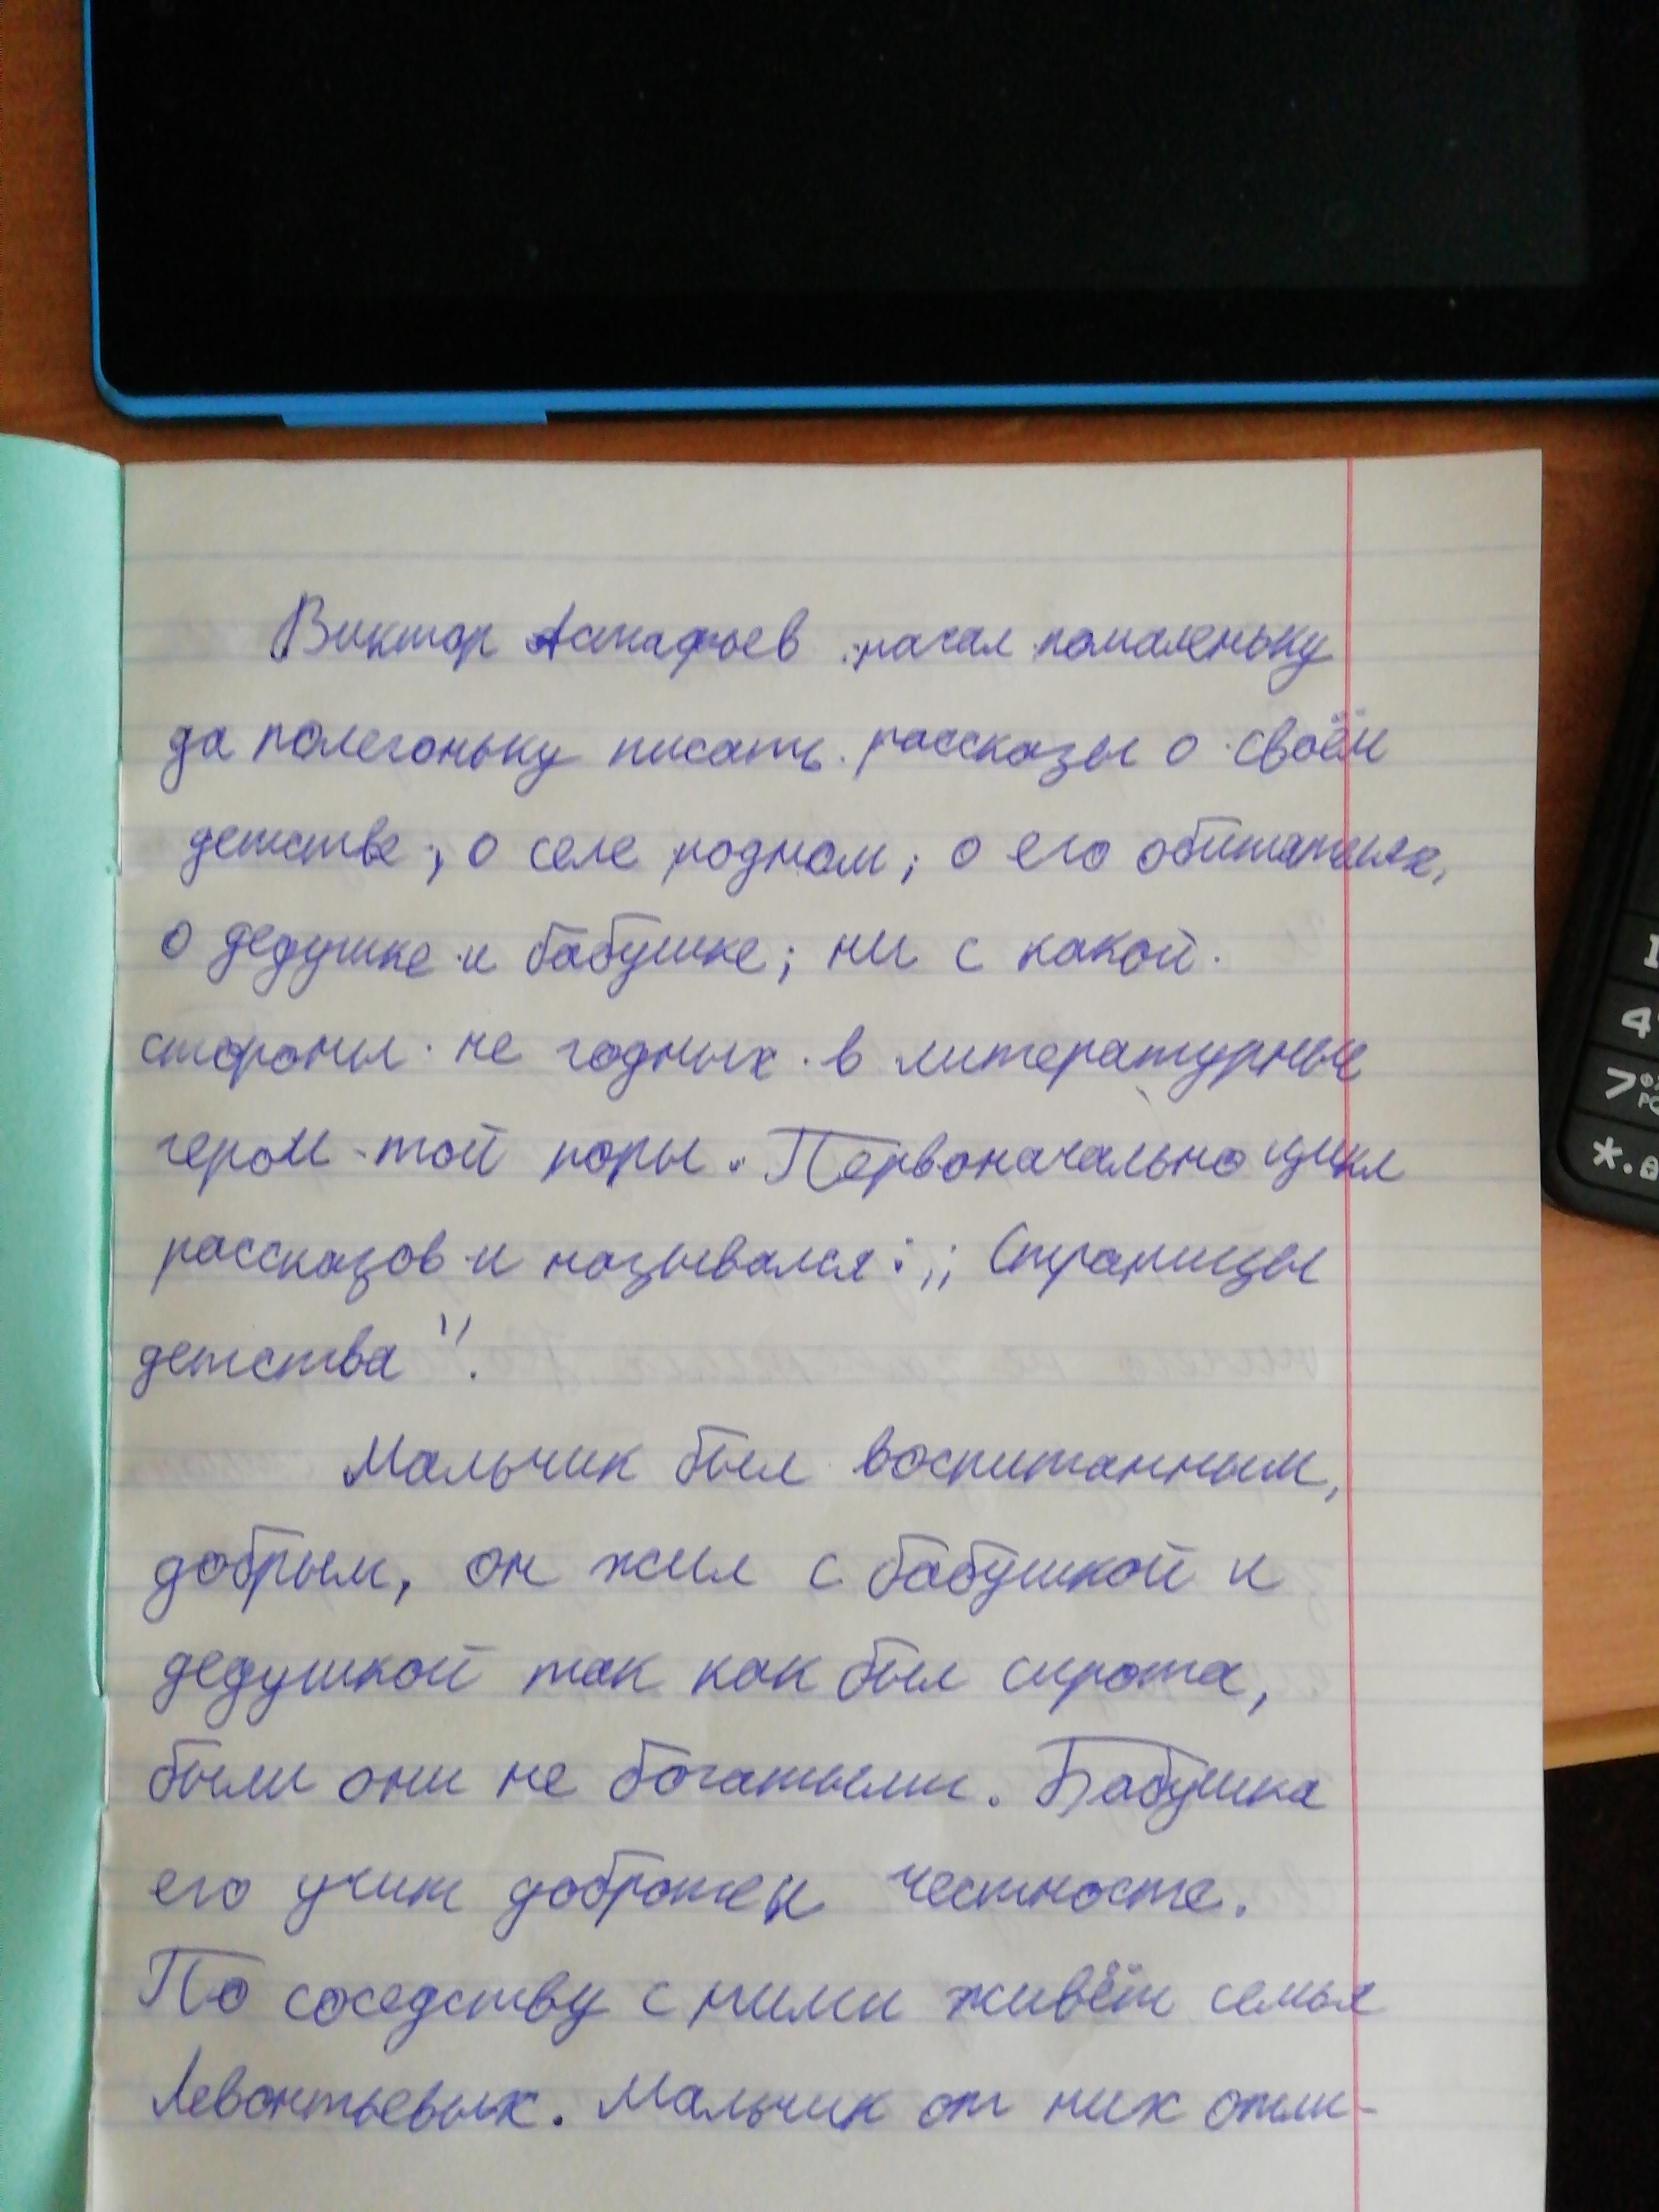 Виктор Астафьев начал помаленьку
да полегоньку писать рассказы о своём
детстве; о селе родном; о его обитателях,
о дедушке и бабушке; ни с какой
стороны не годных в литературные
герои той поры. Первоначально цикл
рассказов и назывался: „Страницы
детства".
Мальчик был воспитанным,
добрым, он жил с бабушкой и
дедушкой так как был сирота,
были они не богатыми. Бабушка
его учит доброте и честносте.
По соседству с ними живёт семья
Левонтьевых. Мальчик от них отли-
1
4
7
*